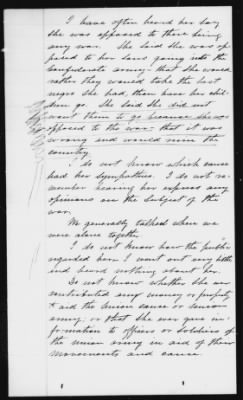 I have often heard her say
she was opposed to there being
any war. She said she was op
posed to her sons going into the
Confederate army - that she would
rather they would take the last
negro she had, than have her chil
dren go. She said she did not
want them to go because she was
opposed to the war - that it was
wrong and would ruin the
country.
I do not know which cause
had her sympathies. I do not re
member hearing her express any
opinions on the subject of the
war.
We generally talked when we
were alone together.
I do not know how the public
regarded her. I went out very little
and heard nothing about her.
Do not know whether she ever
contributed any money or property
to aid the Union cause or Union
army, or that she gave in
formation to officers or soldiers of
the Union army in aid of their
movements and cause.